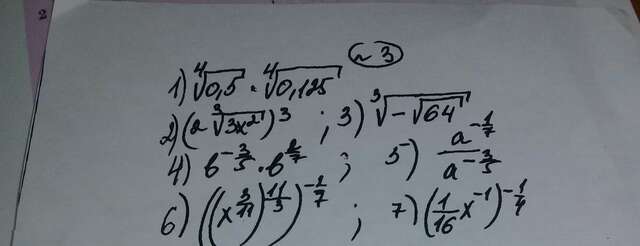 2
n 3
1) ⁴√0,5 · ⁴√0,125
2) (2 ³√3x²)³ ; 3) ³√-√64
4) b^(-3/5) · b^(2/7) ; 5) a^(-1/7) / a^(-3/5)
6) ((x^(3/11))^(11/3))^(-2/7) ; 7) (1/16 x⁻¹)^(-1/4)